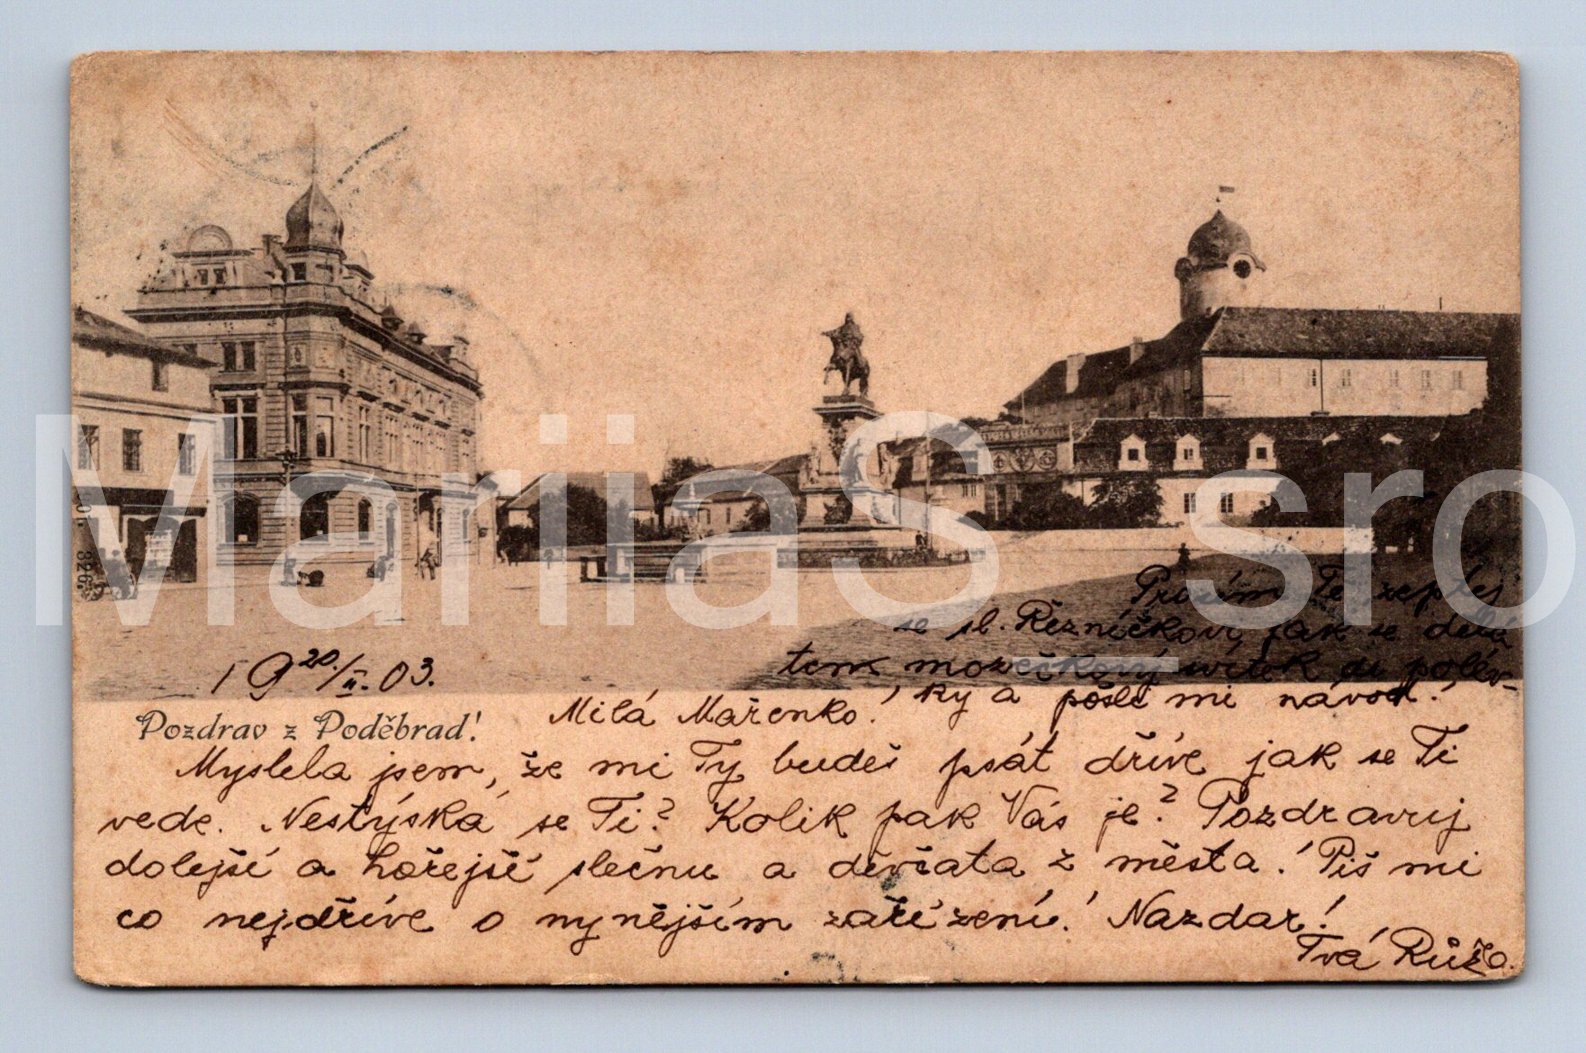 Prosím Tě, zeptej
se sl. Řezníčkovy, jak se dělá
ten mozečkový svítek do polév-
ky a pošli mi návod!
19 20./II. 03.
Pozdrav z Poděbrad!
Milá Mařenko!
Myslela jsem, že mi Ty budeš psát dříve, jak se Ti
vede. Nestýská se Ti? Kolik pak Vás je? Pozdravuj
dolejší a hořejší slečnu a děvčata z města! Piš mi
co nejdříve o nynějším zařízení! Nazdar!
Tvá Růža.
MariiaS_sro